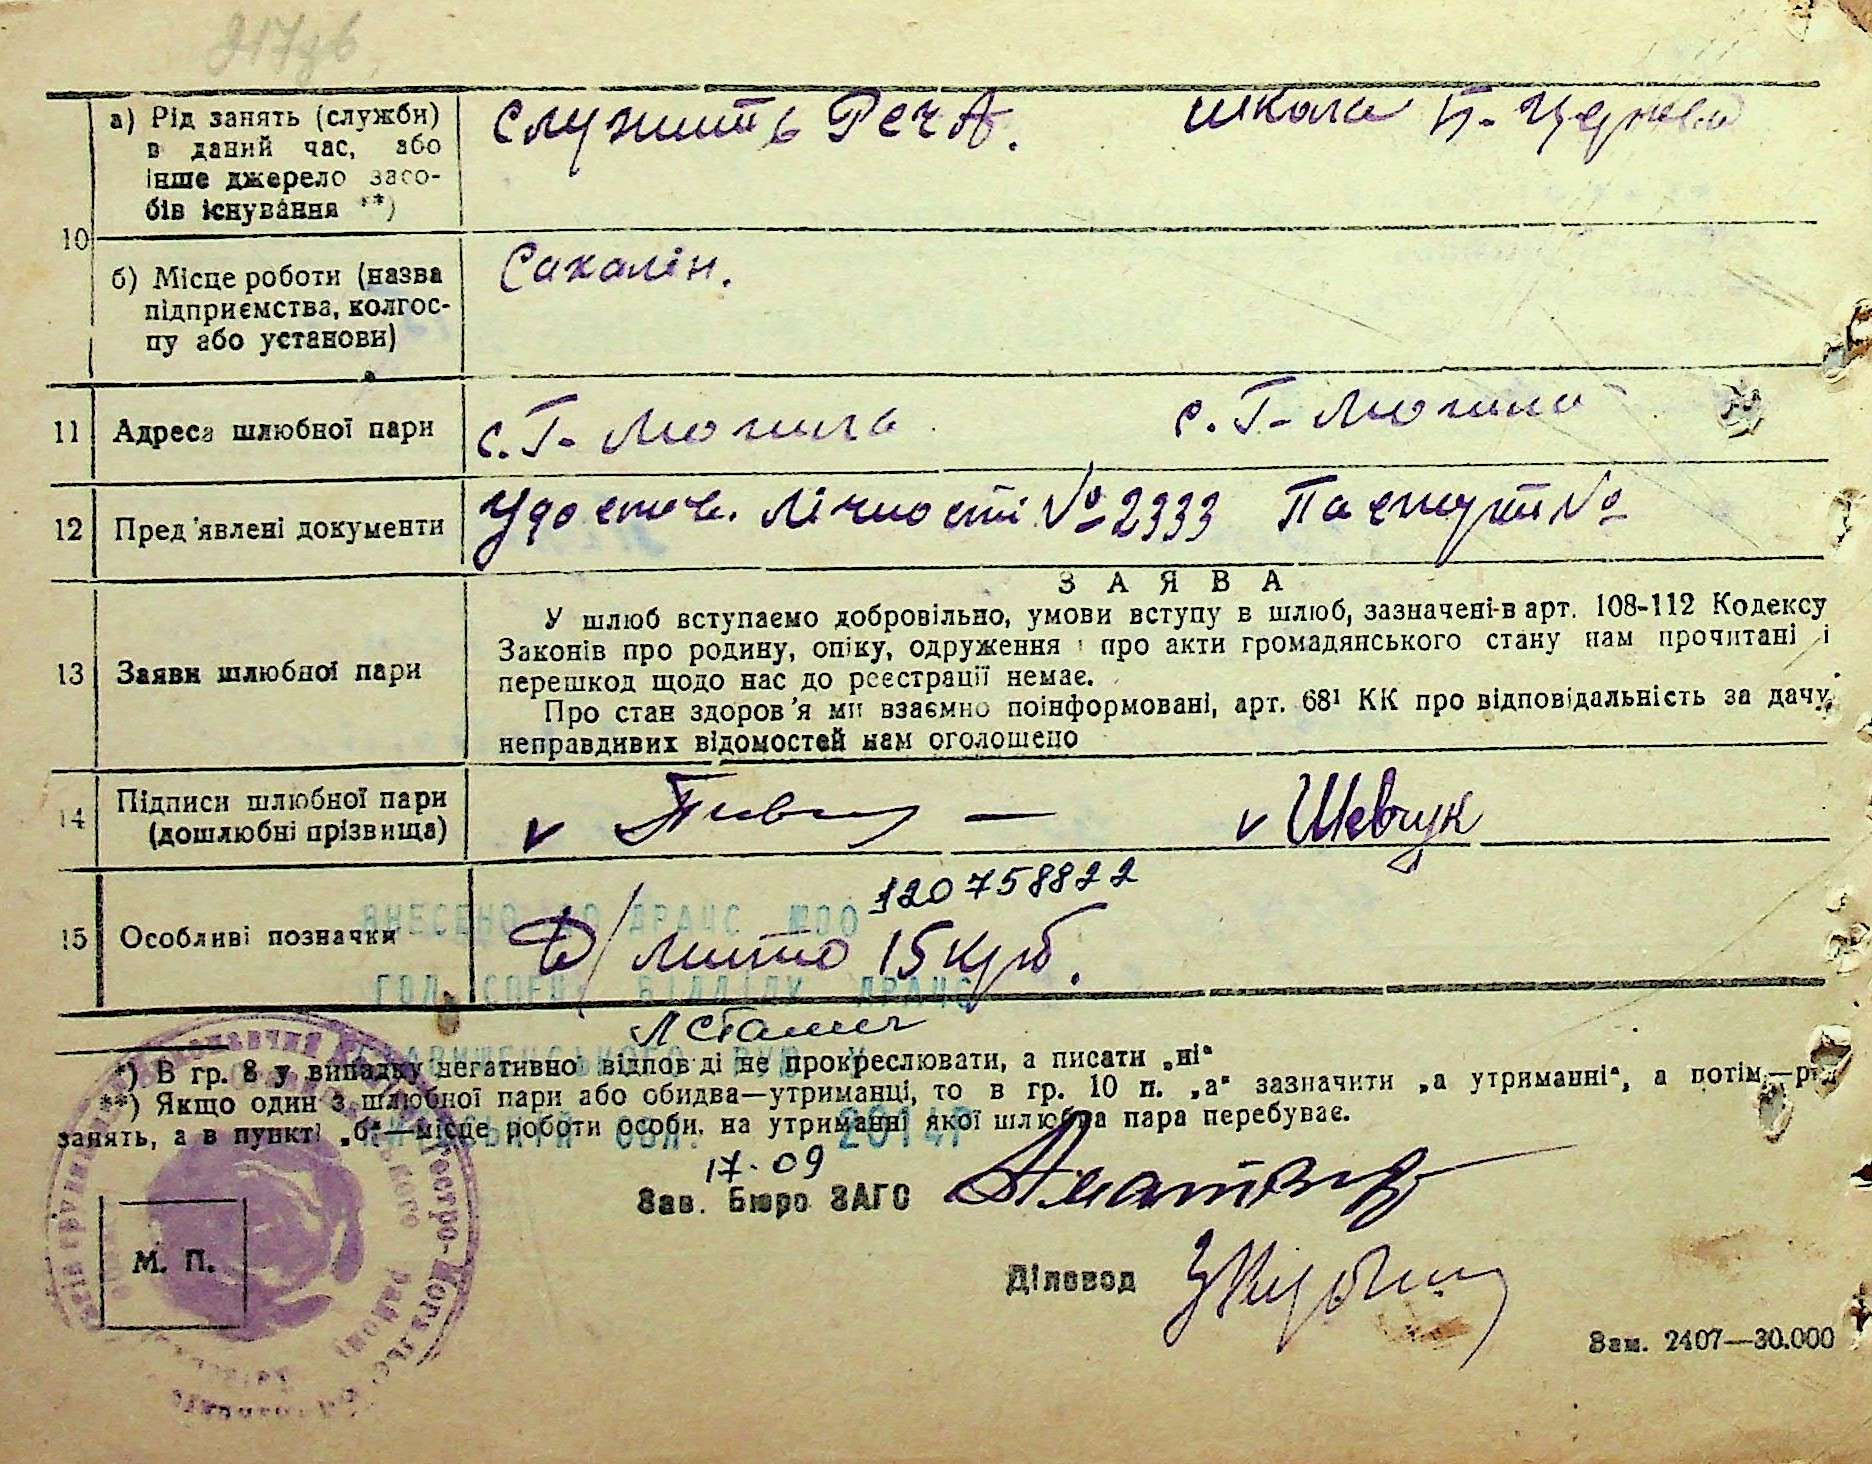 10
а) Рід занять (служби)
в даний час, або
інше джерело засо-
бів існування **)
служить РСЧА. школа П-
б) Місце роботи (назва
підприємства, колгос-
пу або установи)
Сахалін.
11 Адреса шлюбної пари
с. Г-Могила с. Г-Могила
12 Пред'явлені документи
Удостов. лічності № 2333 Паспорт №
13 Заяви шлюбної пари
ЗАЯВА
У шлюб вступаємо добровільно, умови вступу в шлюб, зазначені в арт. 108-112 Кодексу
Законів про родину, опіку, одруження і про акти громадянського стану нам прочитані і
перешкод щодо нас до реєстрації немає.
Про стан здоров'я ми взаємно поінформовані, арт. 68¹ КК про відповідальність за дачу
неправдивих відомостей нам оголошено
14 Підписи шлюбної пари
(дошлюбні прізвища)
v v Шевчук
15 Особливі позначки
120758822
ВНЕСЕНО ДО ДРАЦС №00
мито 15 крб.
ГОЛ. СПЕЦ. ВІДДІЛУ ДРАЦС
*) В гр. 8 у випадку негативної відповіді не прокреслювати, а писати „ні“
**) Якщо один з шлюбної пари або обидва—утриманці, то в гр. 10 п. „а“ зазначити „а утриманні“, а потім—рід
занять, а в пункті „б“—місце роботи особи, на утриманні якої шлюбна пара перебуває.
2014р
17.09
Зав. Бюро ЗАГС
Діловод
М. П.
Зам. 2407—30.000